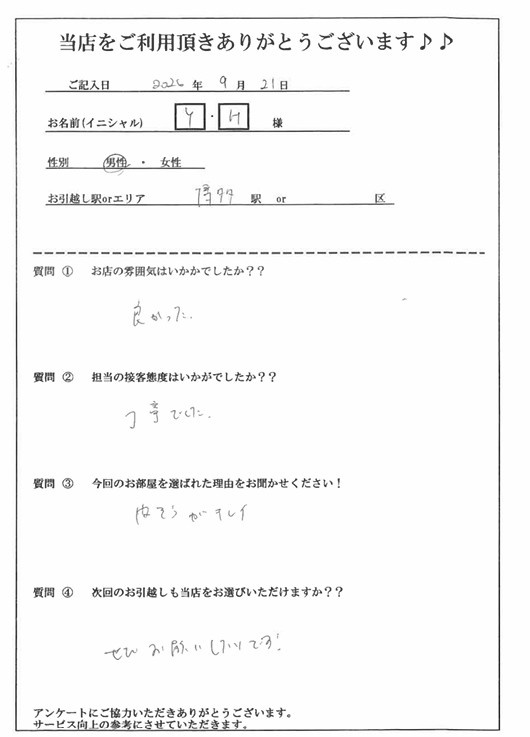 当店をご利用頂きありがとうございます♪♪
ご記入日 2025年 9月 21日
お名前(イニシャル) Y・H 様
性別 男性 ・ 女性
お引越し駅orエリア 博多 駅 or 区
質問 ① お店の雰囲気はいかかでしたか？？
良かった。
質問 ② 担当の接客態度はいかがでしたか？？
丁寧でした。
質問 ③ 今回のお部屋を選ばれた理由をお聞かせください！
内そうがキレイ
質問 ④ 次回のお引越しも当店をお選びいただけますか？？
ぜひお願いしたいです！
アンケートにご協力いただきありがとうございます。
サービス向上の参考にさせていただきます。